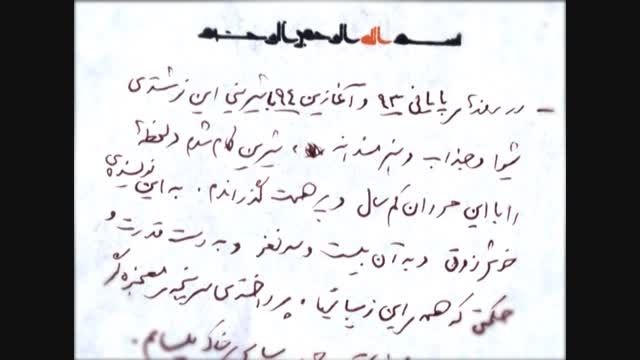 بسم الله الرحمن الرحیم
- در روزهای پایانی ۹۳ و آغازین ۹۴ با شیرینی این نوشته‌ی
شیوا و جذاب و هنرمندانه، شیرین کام شدم و لحظه‌ها
را با این مردان کم سال و پر همت گذراندم. به این نویسنده‌ی
خوش ذوق و به آن بیست و سه نفر و به دست قدرت و
حکمتی که همه‌ی این زیبائیها، پرداخته‌ی سرپنجه‌ی معجزه‌گر